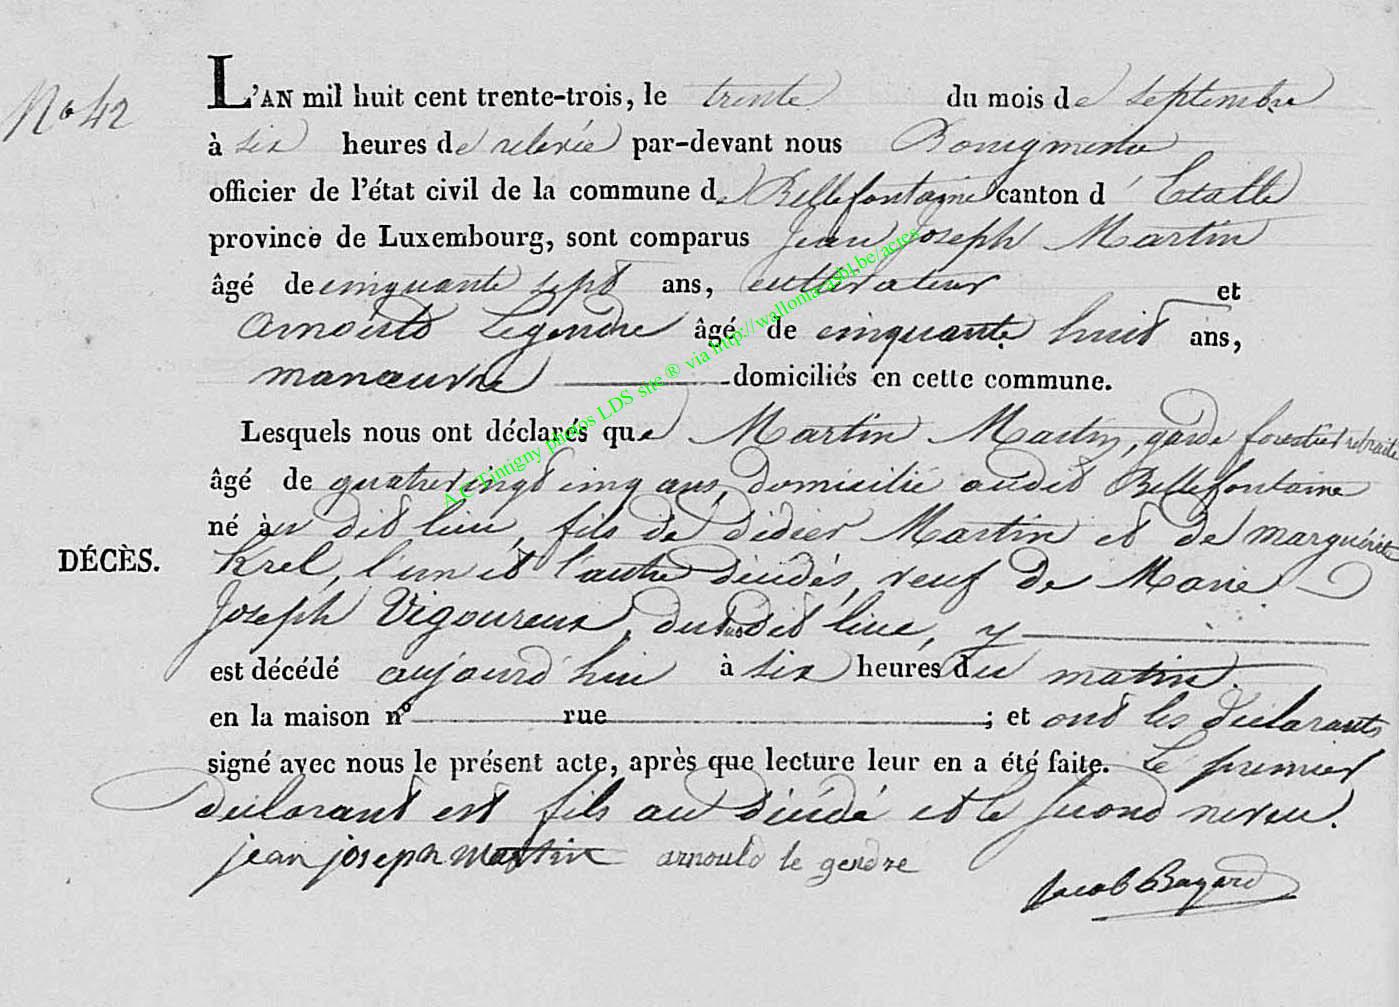 No 42
L'AN mil huit cent trente-trois, le trente du mois de septembre
à six heures de relevée par-devant nous
officier de l'état civil de la commune de Bellefontaine canton d'Etalle
province de Luxembourg, sont comparus Jean Joseph Martin
âgé de cinquante sept ans, cultivateur et
Arnould Legendre âgé de cinquante huit ans,
manœuvre domiciliés en cette commune.
Lesquels nous ont déclarés que Martin Martin, garde forestier retraité
âgé de quatrevingt cinq ans, domicilié audit Bellefontaine
né au dit lieu, fils de didier Martin et de marguérite
DÉCÈS.
Krel, l'un et l'autre décédés, veuf de Marie
Joseph Vigoureux, dit lieu, y
est décédé aujourd'hui à six heures du matin.
en la maison no rue ; et ont les déclarants
signé avec nous le présent acte, après que lecture leur en a été faite. Le premier
déclarant est fils au décédé et le second neveu.
jean joseph Martin arnould le gendre
Jacob Bayard
A.C Tintigny photos LDS site ® via http://wallonia-asbl.be/actes